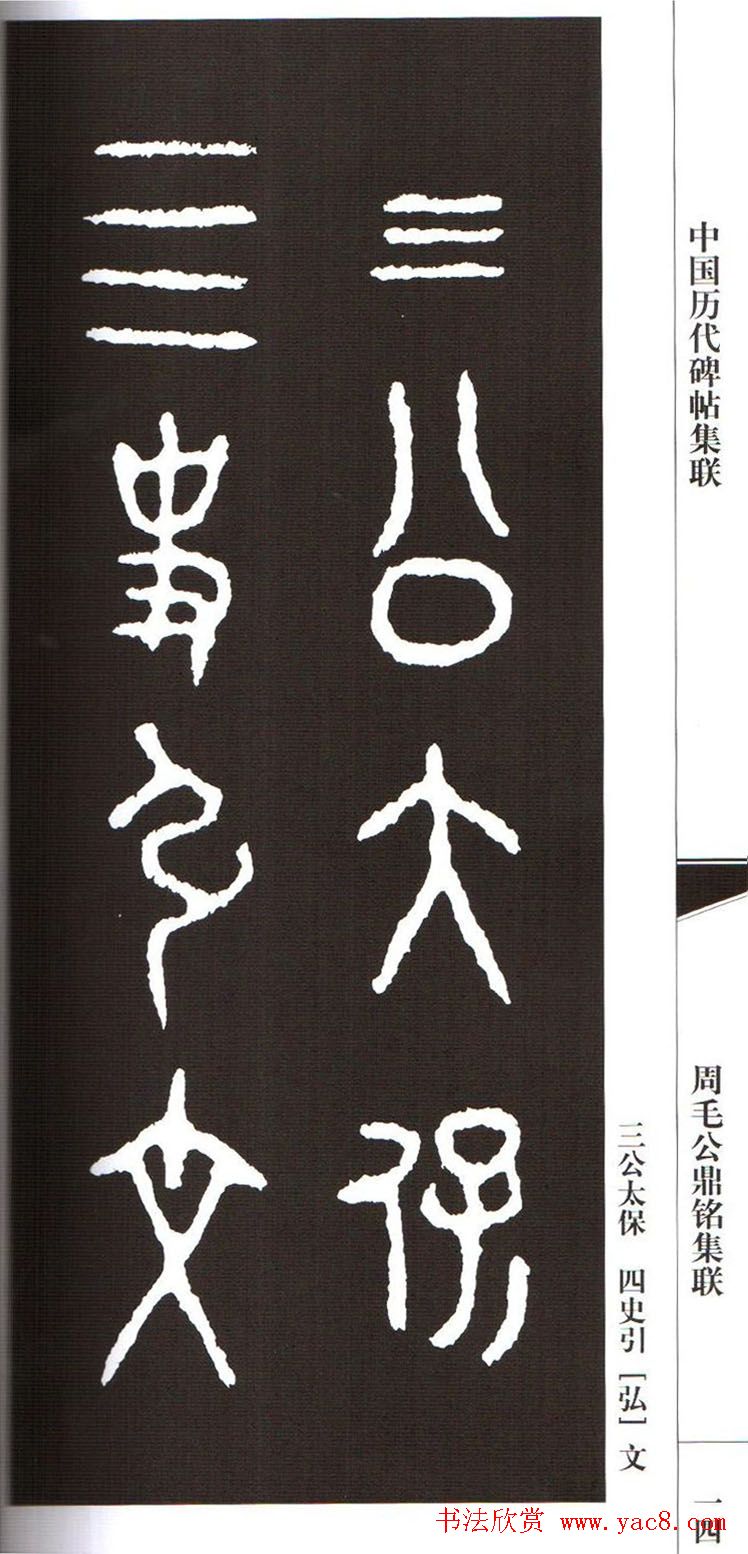 三公大保
四史引文
三公太保 四史引[弘]文
中国历代碑帖集联
周毛公鼎铭集联
一四
书法欣赏 www.yac8.com